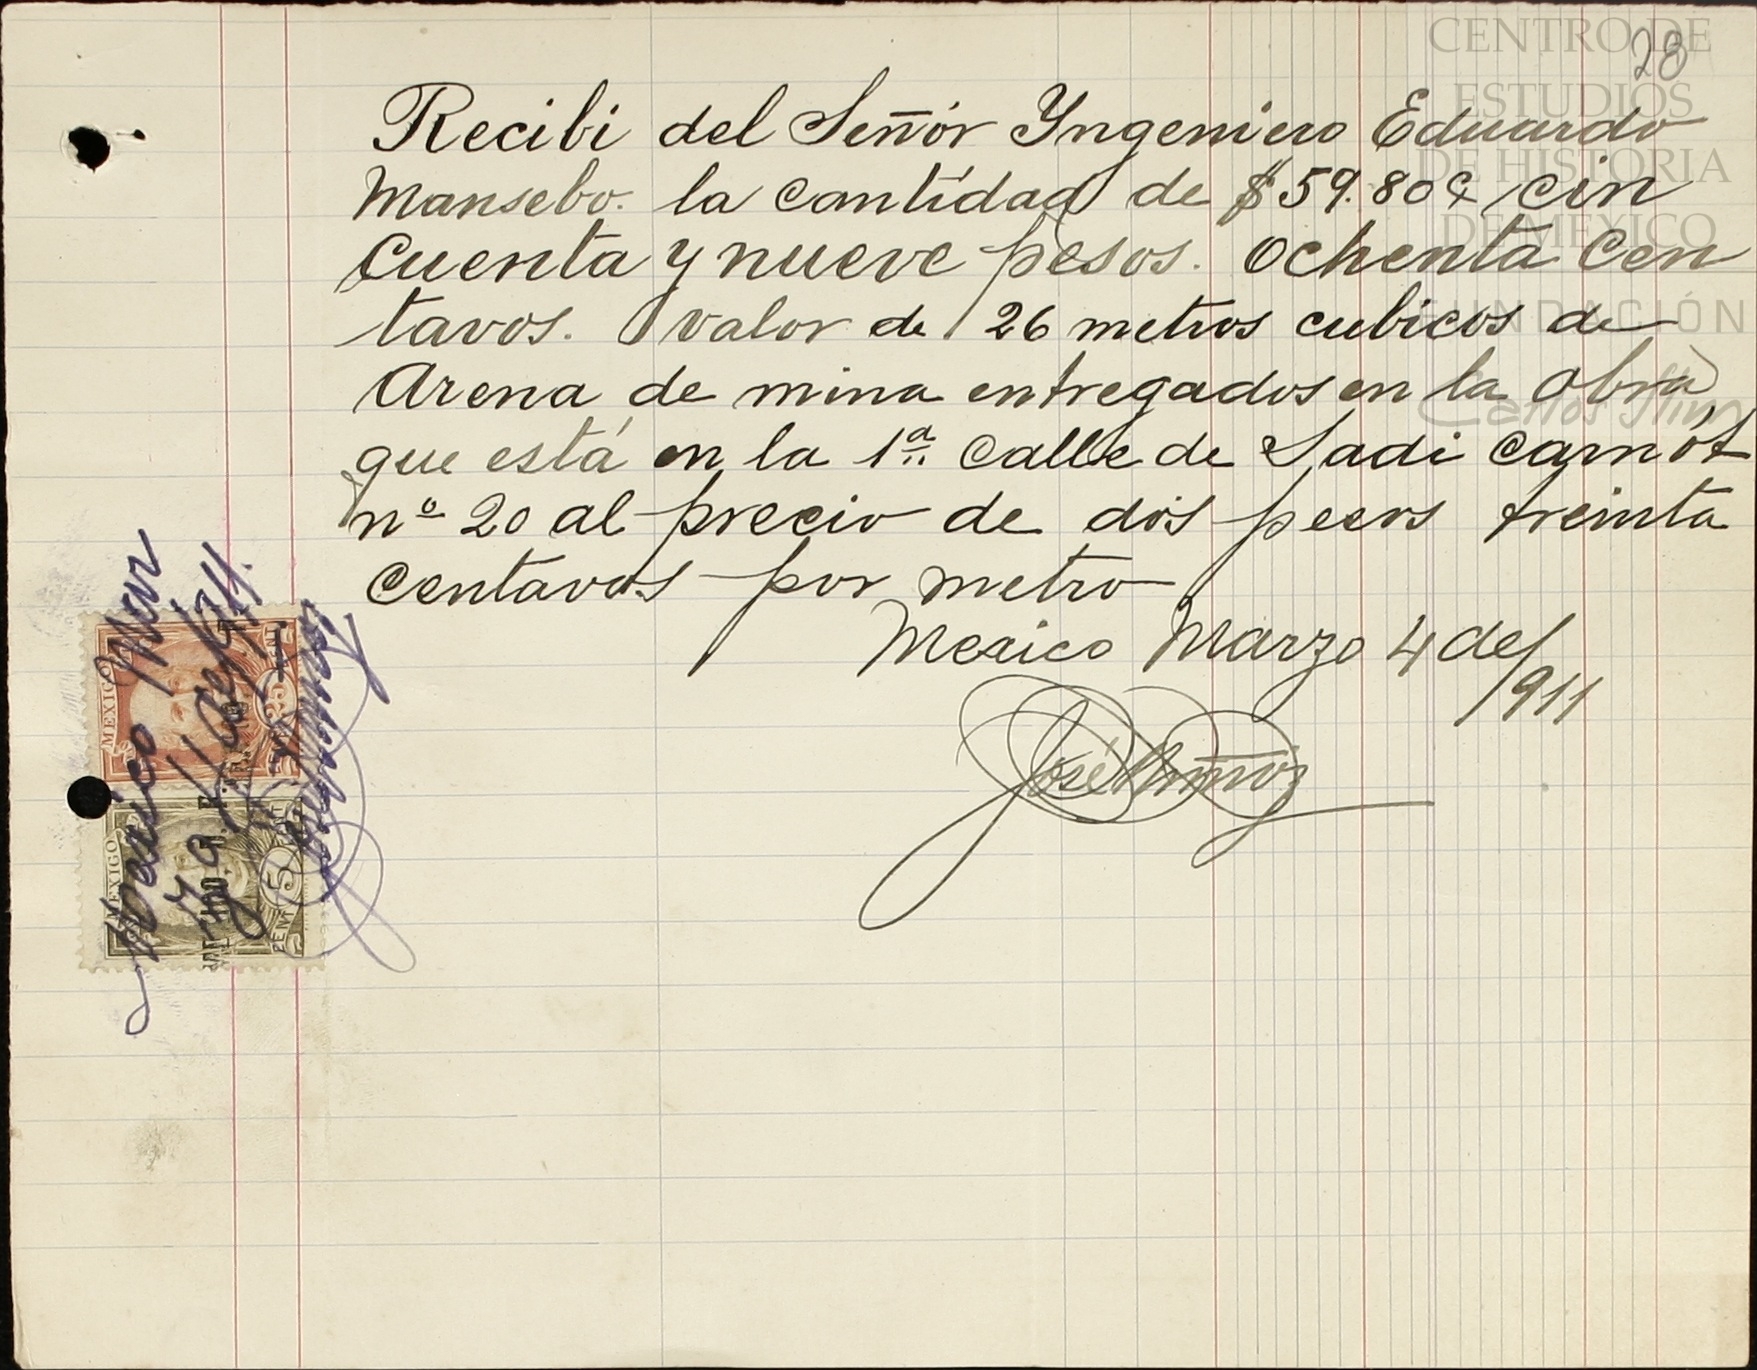 28
CENTRO DE
ESTUDIOS
DE HISTORIA
DE MEXICO
FUNDACIÓN
Carlos Slim
Recibi del Señór Yngeniero Eduardo
Mansebo. la cantidad de $59.80¢ cin
cuenta y nueve pesos. ochenta cen
tavos. valor de 26 metros cubicos de
Arena de mina entregados en la obra,
que está en la 1ª calle de Sadi carnót
nº 20 al precio de dós pesos treinta
centavos por metro
Mexico Marzo 4 de
1911
José Muñóz
Mexico Mar
zo 4 de 1911.
José Muñóz
MEXICO
25
MEXICO
5
CENT